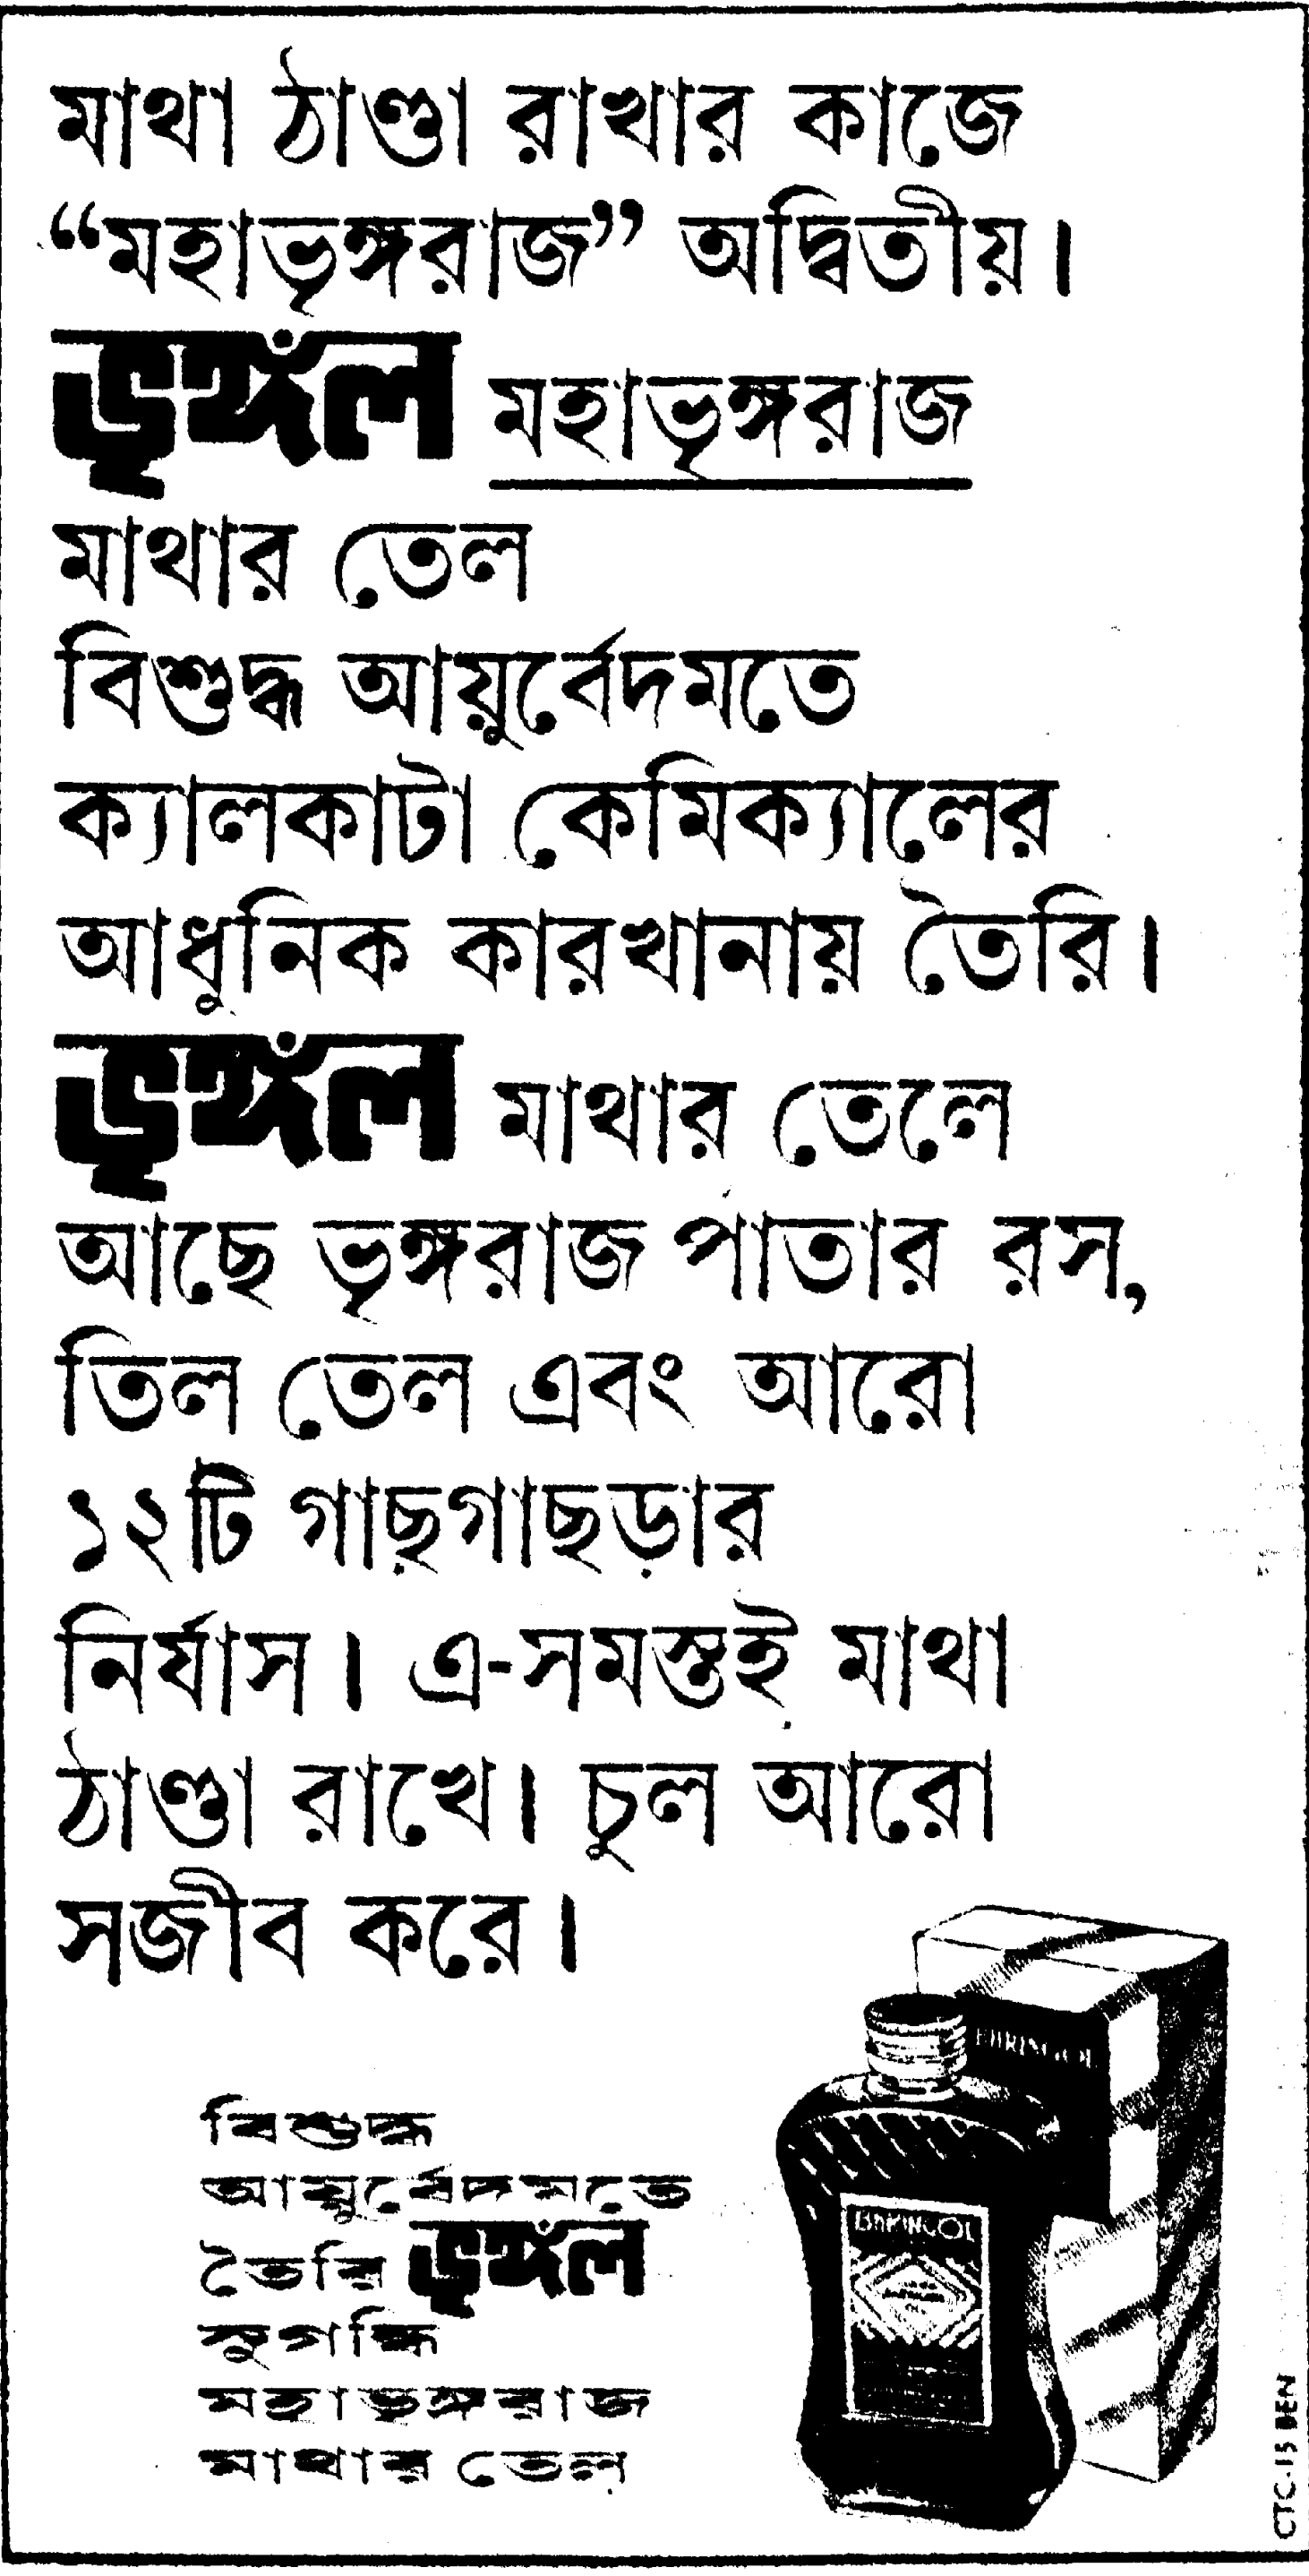 মাথা ঠাণ্ডা রাখার কাজে
“মহাভৃঙ্গরাজ” অদ্বিতীয়।
ভৃঙ্গল মহাভৃঙ্গরাজ
মাথার তেল
বিশুদ্ধ আয়ুর্বেদমতে
ক্যালকাটা কেমিক্যালের
আধুনিক কারখানায় তৈরি।
ভৃঙ্গল মাথার তেলে
আছে ভৃঙ্গরাজ পাতার রস,
তিল তেল এবং আরো
১২টি গাছগাছড়ার
নির্যাস। এ-সমস্তই মাথা
ঠাণ্ডা রাখে। চুল আরো
সজীব করে।
বিশুদ্ধ
আয়ুর্বেদমতে
তৈরি ভৃঙ্গল
সুগন্ধি
মহাভৃঙ্গরাজ
মাথার তেল
BHRINGOL
BHRINGOL
CTC-15 BEN